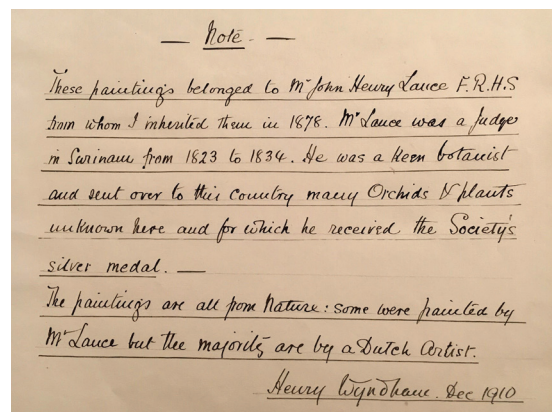 — Note —
These paintings belonged to Mr John Henry Lance F.R.H.S
from whom I inherited them in 1878. Mr Lance was a Judge
in Surinam from 1823 to 1834. He was a keen botanist
and sent over to this country many Orchids & plants
unknown here and for which he received the Society's
silver medal. —
The paintings are all from Nature: some were painted by
Mr Lance but the majority are by a Dutch Artist.
Henry Wyndham. Dec 1910